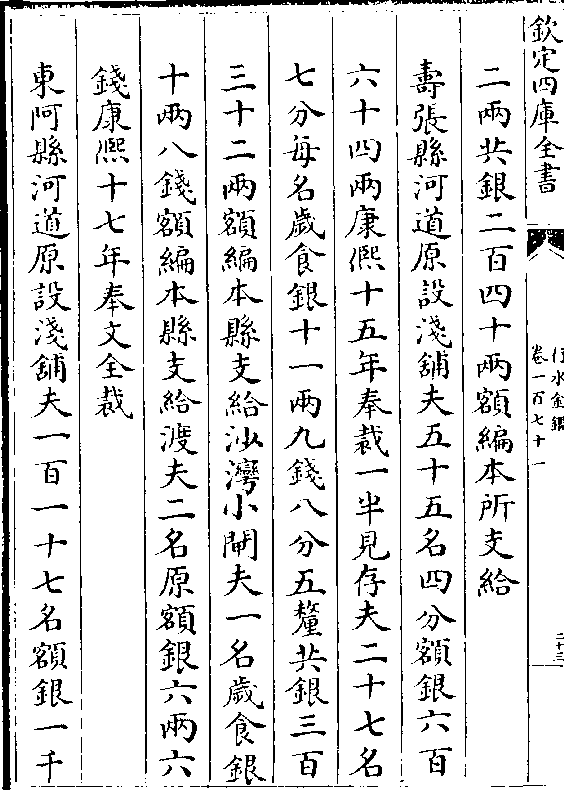 欽定四庫全書
行水金鑑
卷一百七十一
二十三
二兩共銀二百四十兩額編本所支給
壽張縣河道原設淺舖夫五十五名四分額銀六百
六十四兩康熈十五年奉裁一半見存夫二十七名
七分毎名歲食銀十一兩九錢八分五釐共銀三百
三十二兩額編本縣支給沙灣小閘夫一名歲食銀
十兩八錢額編本縣支給渡夫二名原額銀六兩六
錢康熈十七年奉文全裁
東阿縣河道原設淺舖夫一百一十七名額銀一千